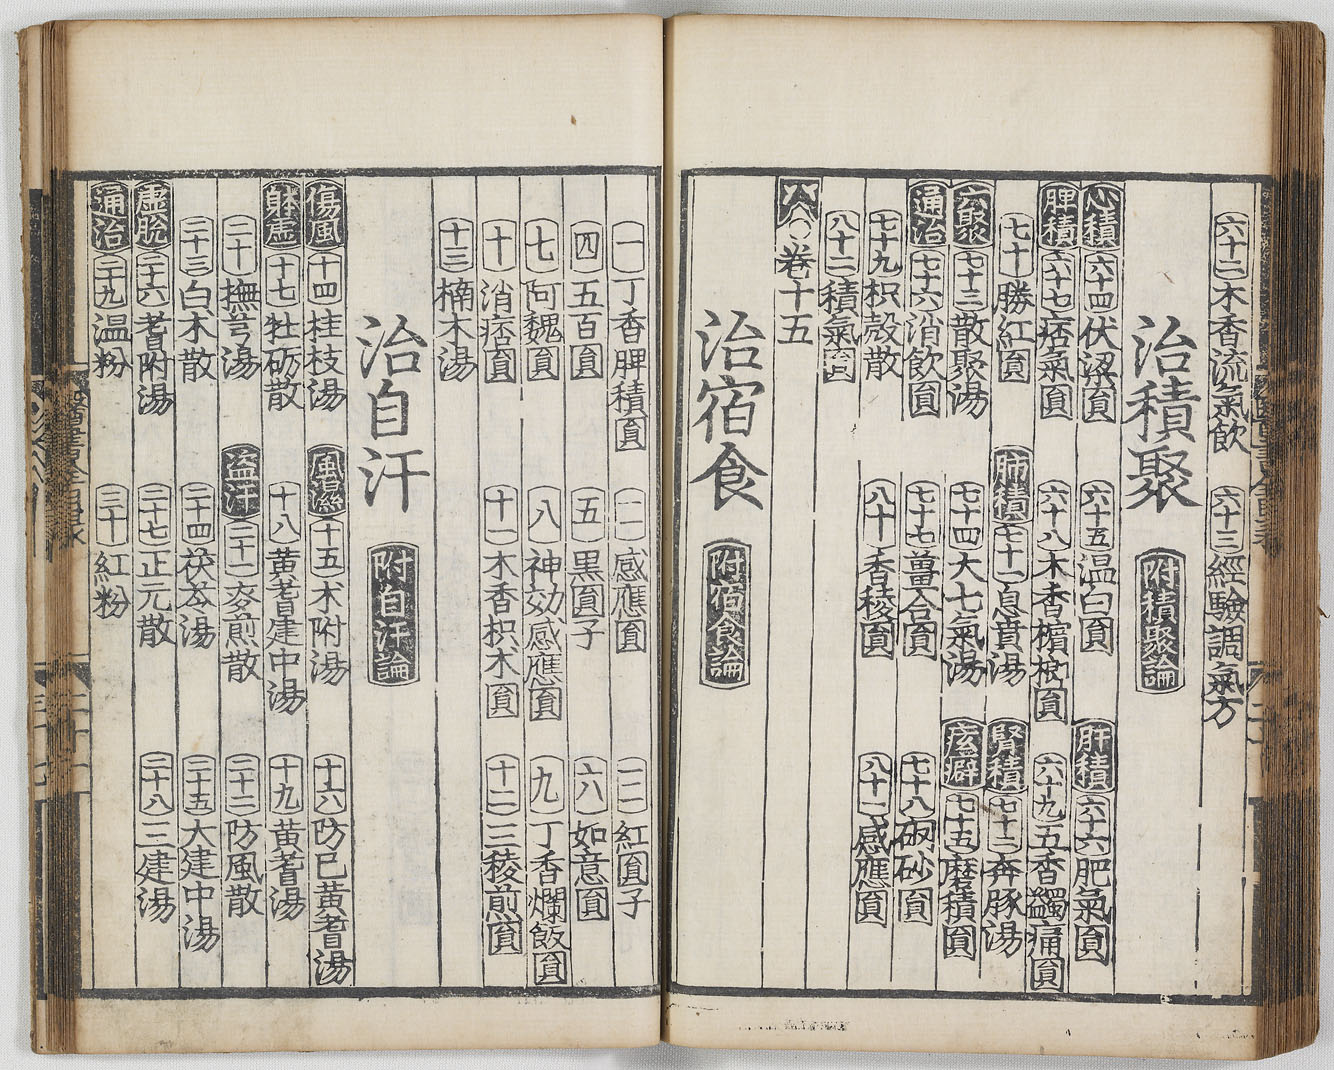 六十二木香流氣飲 六十三經驗調氣方
治積聚 附積聚論
心積 六十四伏梁圎 六十五温白圎 肝積 六十六肥氣圎
脾積 六十七痞氣圎 六十八木香檳榔圎 六十九五香蠲痛圎
七十勝紅圎 肺積 七十一息賁湯 腎積 七十二奔豚湯
六聚 七十三散聚湯 七十四大七氣湯 痃癖 七十五磨積圎
通治 七十六消飲圎 七十七薑合圎 七十八硇砂圎
七十九枳殼散 八十香稜圎 八十一感應圎
八十二積氣圎
卷十五
治宿食 附宿食論
一丁香脾積圎 二感應圎 三紅圎子
四五百圎 五黒圎子 六如意圎
七阿魏圎 八神効感應圎 九丁香爛飯圎
十消痞圎 十一木香枳朮圎 十二三稜煎圎
十三楠木湯
治自汗 附自汗論
傷風 十四桂枝湯 風濕 十五朮附湯 十六防巳黄耆湯
躰虛 十七牡砺散 十八黄耆建中湯 十九黄耆湯
二十撫芎湯 盗汗 二十一麥煎散 二十二防風散
二十三白木散 二十四茯苓湯 二十五大建中湯
虛脫 二十六耆附湯 二十七正元散 二十八三建湯
通治 二十九温粉 三十紅粉